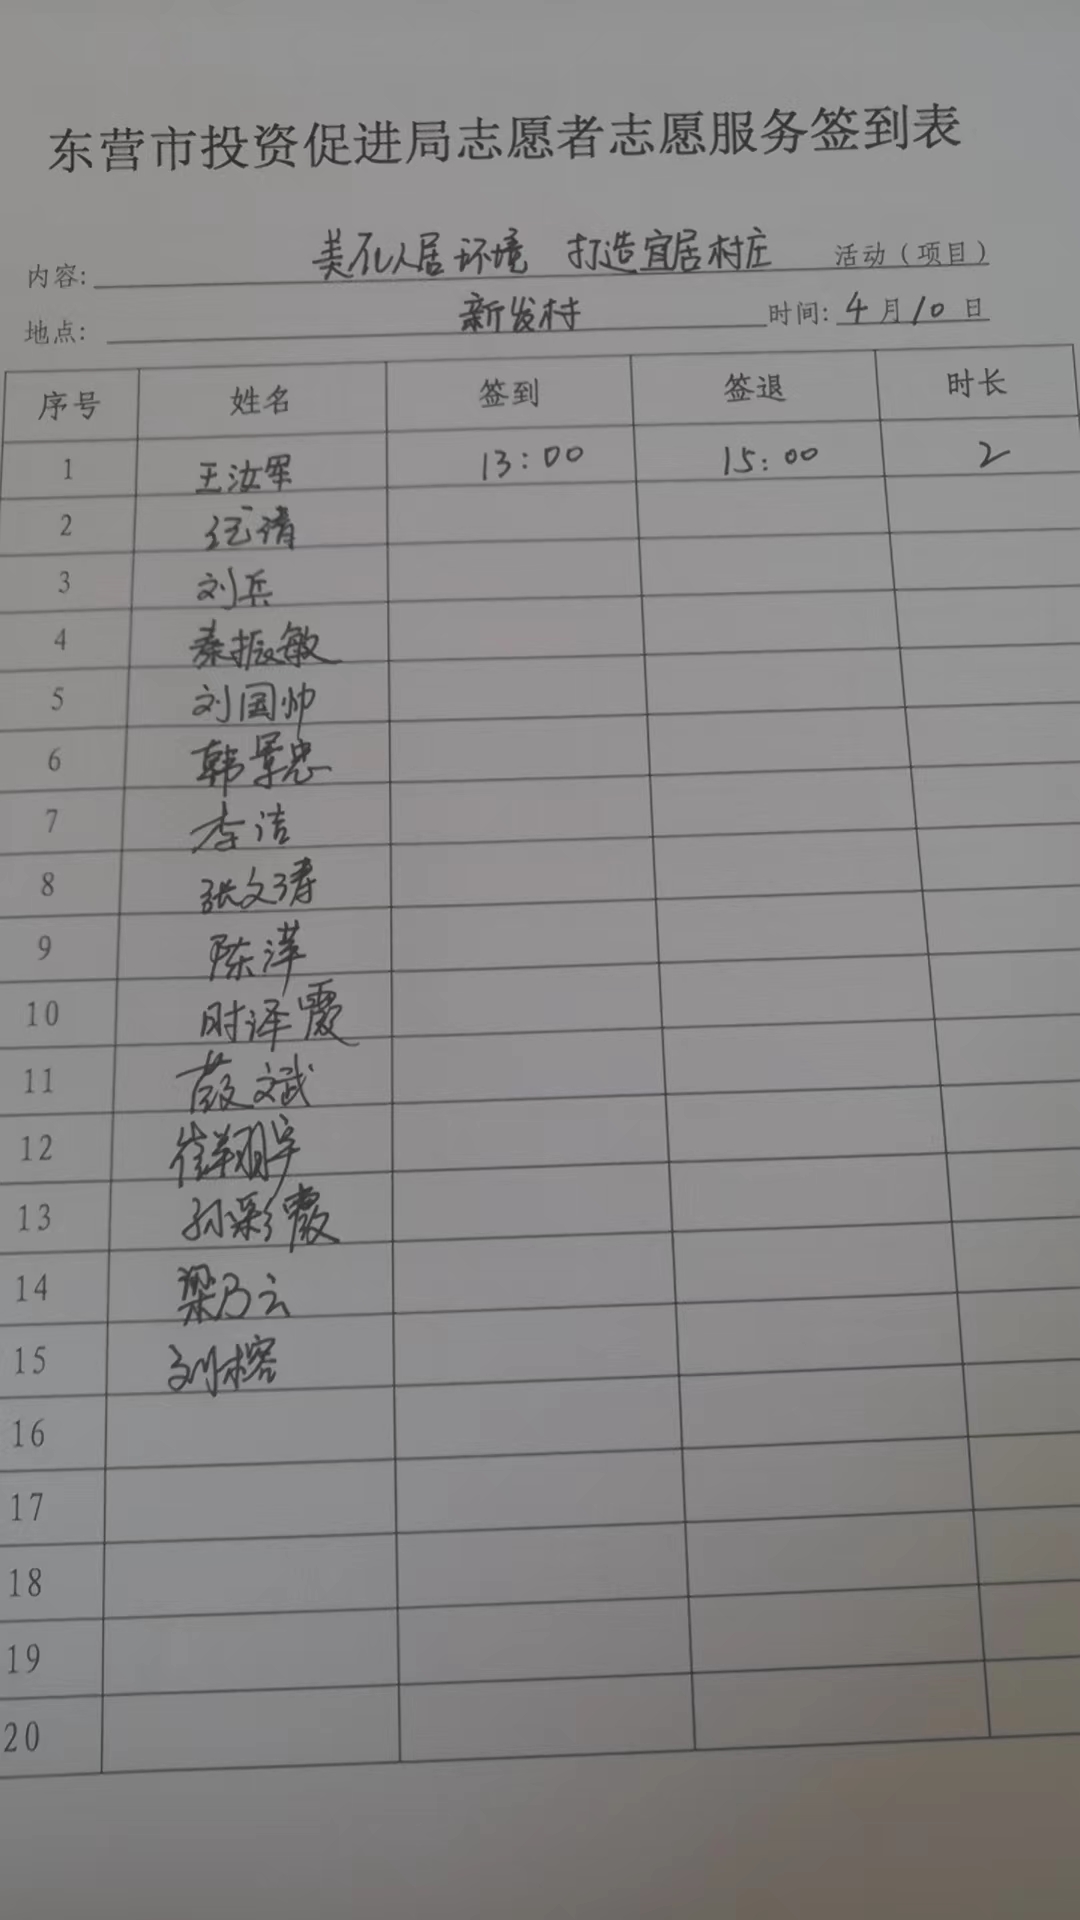 东营市投资促进局志愿者志愿服务签到表
内容: 美化人居环境 打造宜居村庄 活动（项目）
地点: 新发村 时间: 4月10日
序号 姓名 签到 签退 时长
1 王汝军 13:00 15:00 2
2
3 刘兵
4 秦振敏
5 刘国帅
6 韩景忠
7 李洁
8 张文涛
9 陈洋
10 时泽霞
11 薛文斌
12 崔翔宇
13 孙彩霞
14 梁乃云
15 刘榕
16
17
18
19
20